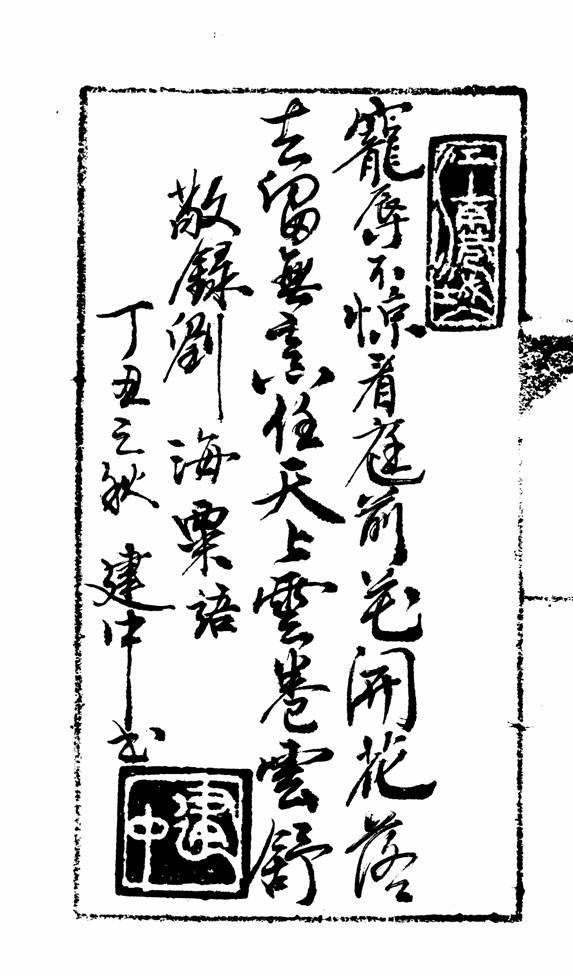 寵辱不惊看庭前花開花落
去留無意任天上雲卷雲舒
敬録劉海粟語
丁丑之秋 建中书
建中